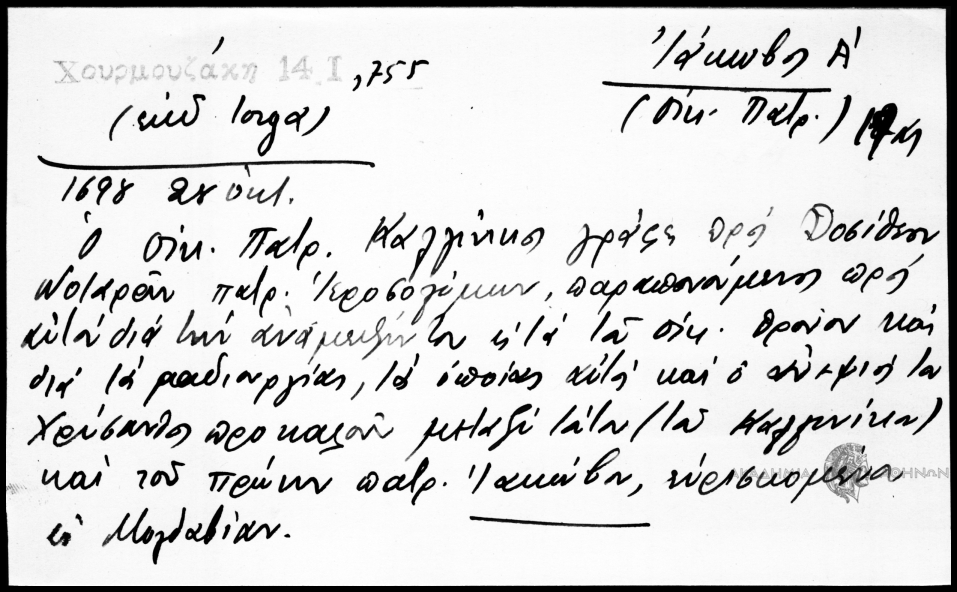 Χουρμουζάκη 14 I, 755
(ἐκδ Iorga)
Ἰάκωβος Α΄
(Οἰκ. Πατρ.)
1698 28 Ὀκτ.
Ὁ Οἰκ. Πατρ. Καλλίνικος γράφει πρός Δοσίθεον
Νοταρᾶν πατρ. Ἱεροσολύμων, παραπονούμενος πρός
αὐτόν διά τήν ἀνάμειξίν του εἰς τά τοῦ οἰκ. θρόνου καί
διά τάς ραδιουργίας, τάς ὁποίας αὐτός καί ὁ ἀνεψιός του
Χρύσανθος προκαλοῦν μεταξύ τούτου (τοῦ Καλλινίκου)
καί τοῦ πρώην πατρ. Ἰακώβου, εὑρισκομένου
εἰς Μολδαβίαν.
ΑΚΑΔΗΜΙΑ ΑΘΗΝΩΝ